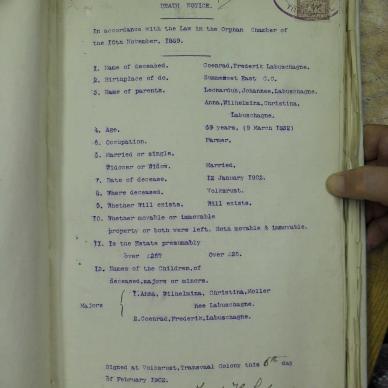 DEATH NOTICE.
In accordance with the Law in the Orphan Chamber of
the 10th November, 1859.
1. Name of deceased. Coenrad, Frederik Labuschagne.
2. Birthplace of do. Sommerset East C.C.
3. Name of parents. Leonardus, Johannes, Labuschagne.
Anna, Wilhelmina, Christina,
Labuschagne.
4. Age. 69 years, (9 March 1832)
6. Occupation. Farmer.
5. Married or single.
Widower or Widow. Married.
7. Date of decease. 12 January 1902.
8. Where deceased. Volksrust.
9. Whether Will exists. Will exists.
10. Whether movable or immovable
property or both were left. Both movable & immovable.
11. Is the Estate presumably
over £25? Over £25.
12. Names of the Children, of
deceased, majors or minors.
Majors
1. Anna, Wilhelmina, Christina, Moller
nee Labuschagne.
2. Coenrad, Frederik, Labuschagne.
Signed at Volksrust, Transvaal Colony this 6th day
of February 1902.